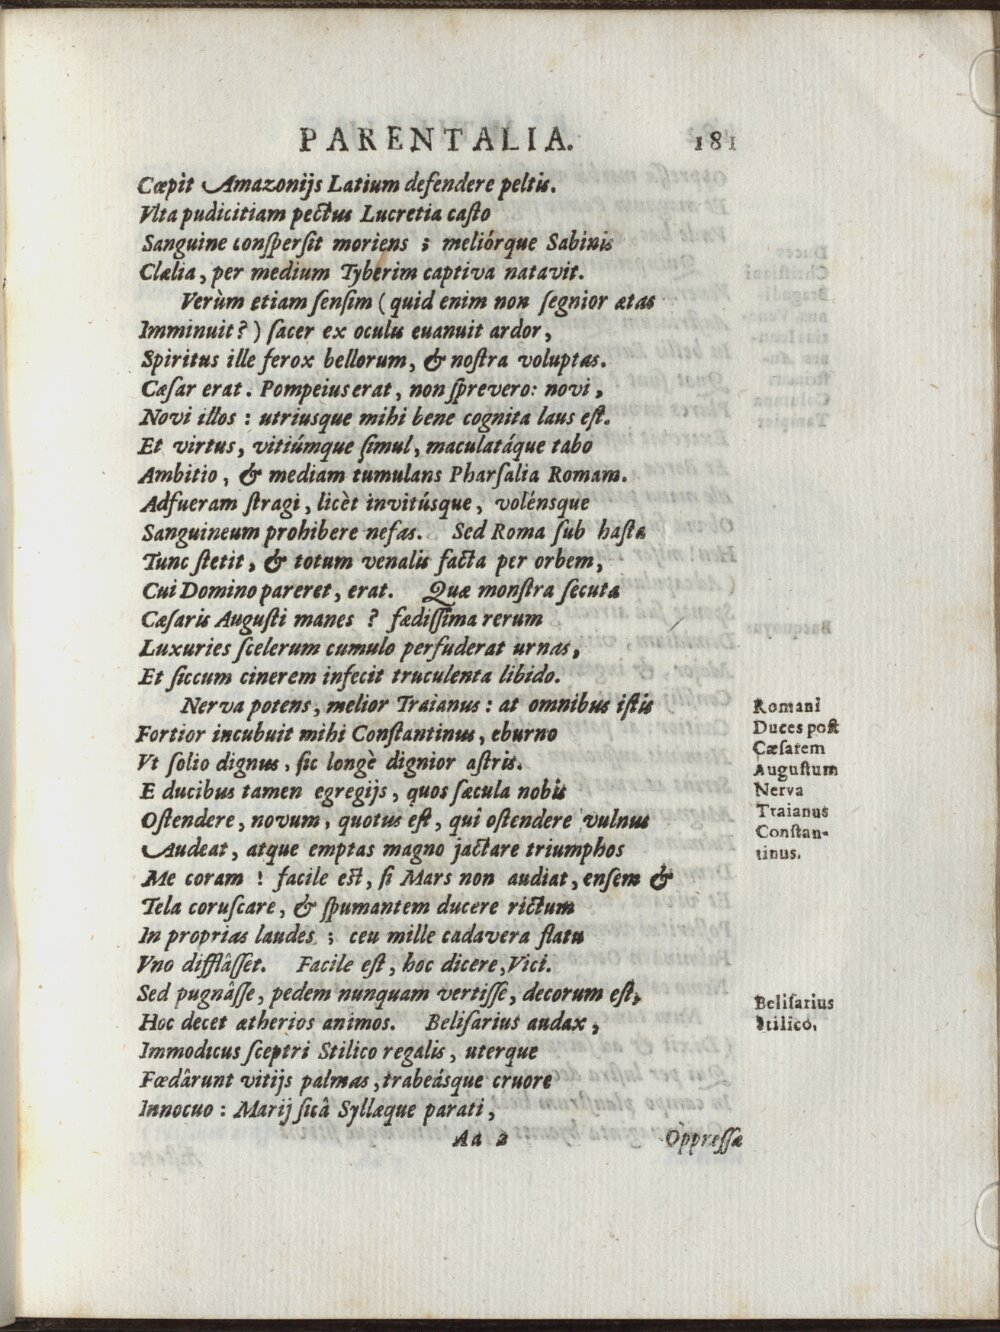 PARENTALIA. 181
Cœpit Amazonijs Latium defendere peltis.
Vlta pudicitiam pectus Lucretia casto
Sanguine conspersit moriens ; meliórque Sabinis
Clælia, per medium Tyberim captiva natavit.
Verùm etiam sensim ( quid enim non segnior ætas
Imminuit? ) sacer ex oculis euanuit ardor,
Spiritus ille ferox bellorum, & nostra voluptas.
Cæsar erat. Pompeius erat, non sprevero: novi,
Novi illos : utriusque mihi bene cognita laus est.
Et virtus, vitiúmque simul, maculatáque tabo
Ambitio, & mediam tumulans Pharsalia Romam.
Adfueram stragi, licèt invitúsque, volénsque
Sanguineum prohibere nefas. Sed Roma sub hasta
Tunc stetit, & totum venalis facta per orbem,
Cui Domino pareret, erat. Quæ monstra secuta
Cæsaris Augusti manes ? fædissima rerum
Luxuries scelerum cumulo perfuderat urnas,
Et siccum cinerem infecit truculenta libido.
Nerva potens, melior Traianus : at omnibus istis
Fortior incubuit mihi Constantinus, eburno
Vt solio dignus, sic longè dignior astris.
E ducibus tamen egregijs, quos sæcula nobis
Ostendere, novum, quotus est, qui ostendere vulnus
Audeat, atque emptas magno jactare triumphos
Me coram ! facile est, si Mars non audiat, ensem &
Tela coruscare, & spumantem ducere rictum
In proprias laudes ; ceu mille cadavera flatu
Vno difflâsset. Facile est, hoc dicere, Vici.
Sed pugnâsse, pedem nunquam vertisse, decorum est,
Hoc decet ætherios animos. Belisarius audax,
Immodicus sceptri Stilico regalis, uterque
Fœdârunt vitijs palmas, trabeásque cruore
Innocuo : Marij sicâ Syllæque parati,
Aa 2 Oppressæ
Romani
Duces post
Cæsarem
Augustum
Nerva
Traianus
Constan-
tinus.
Belisarius
Stilico.